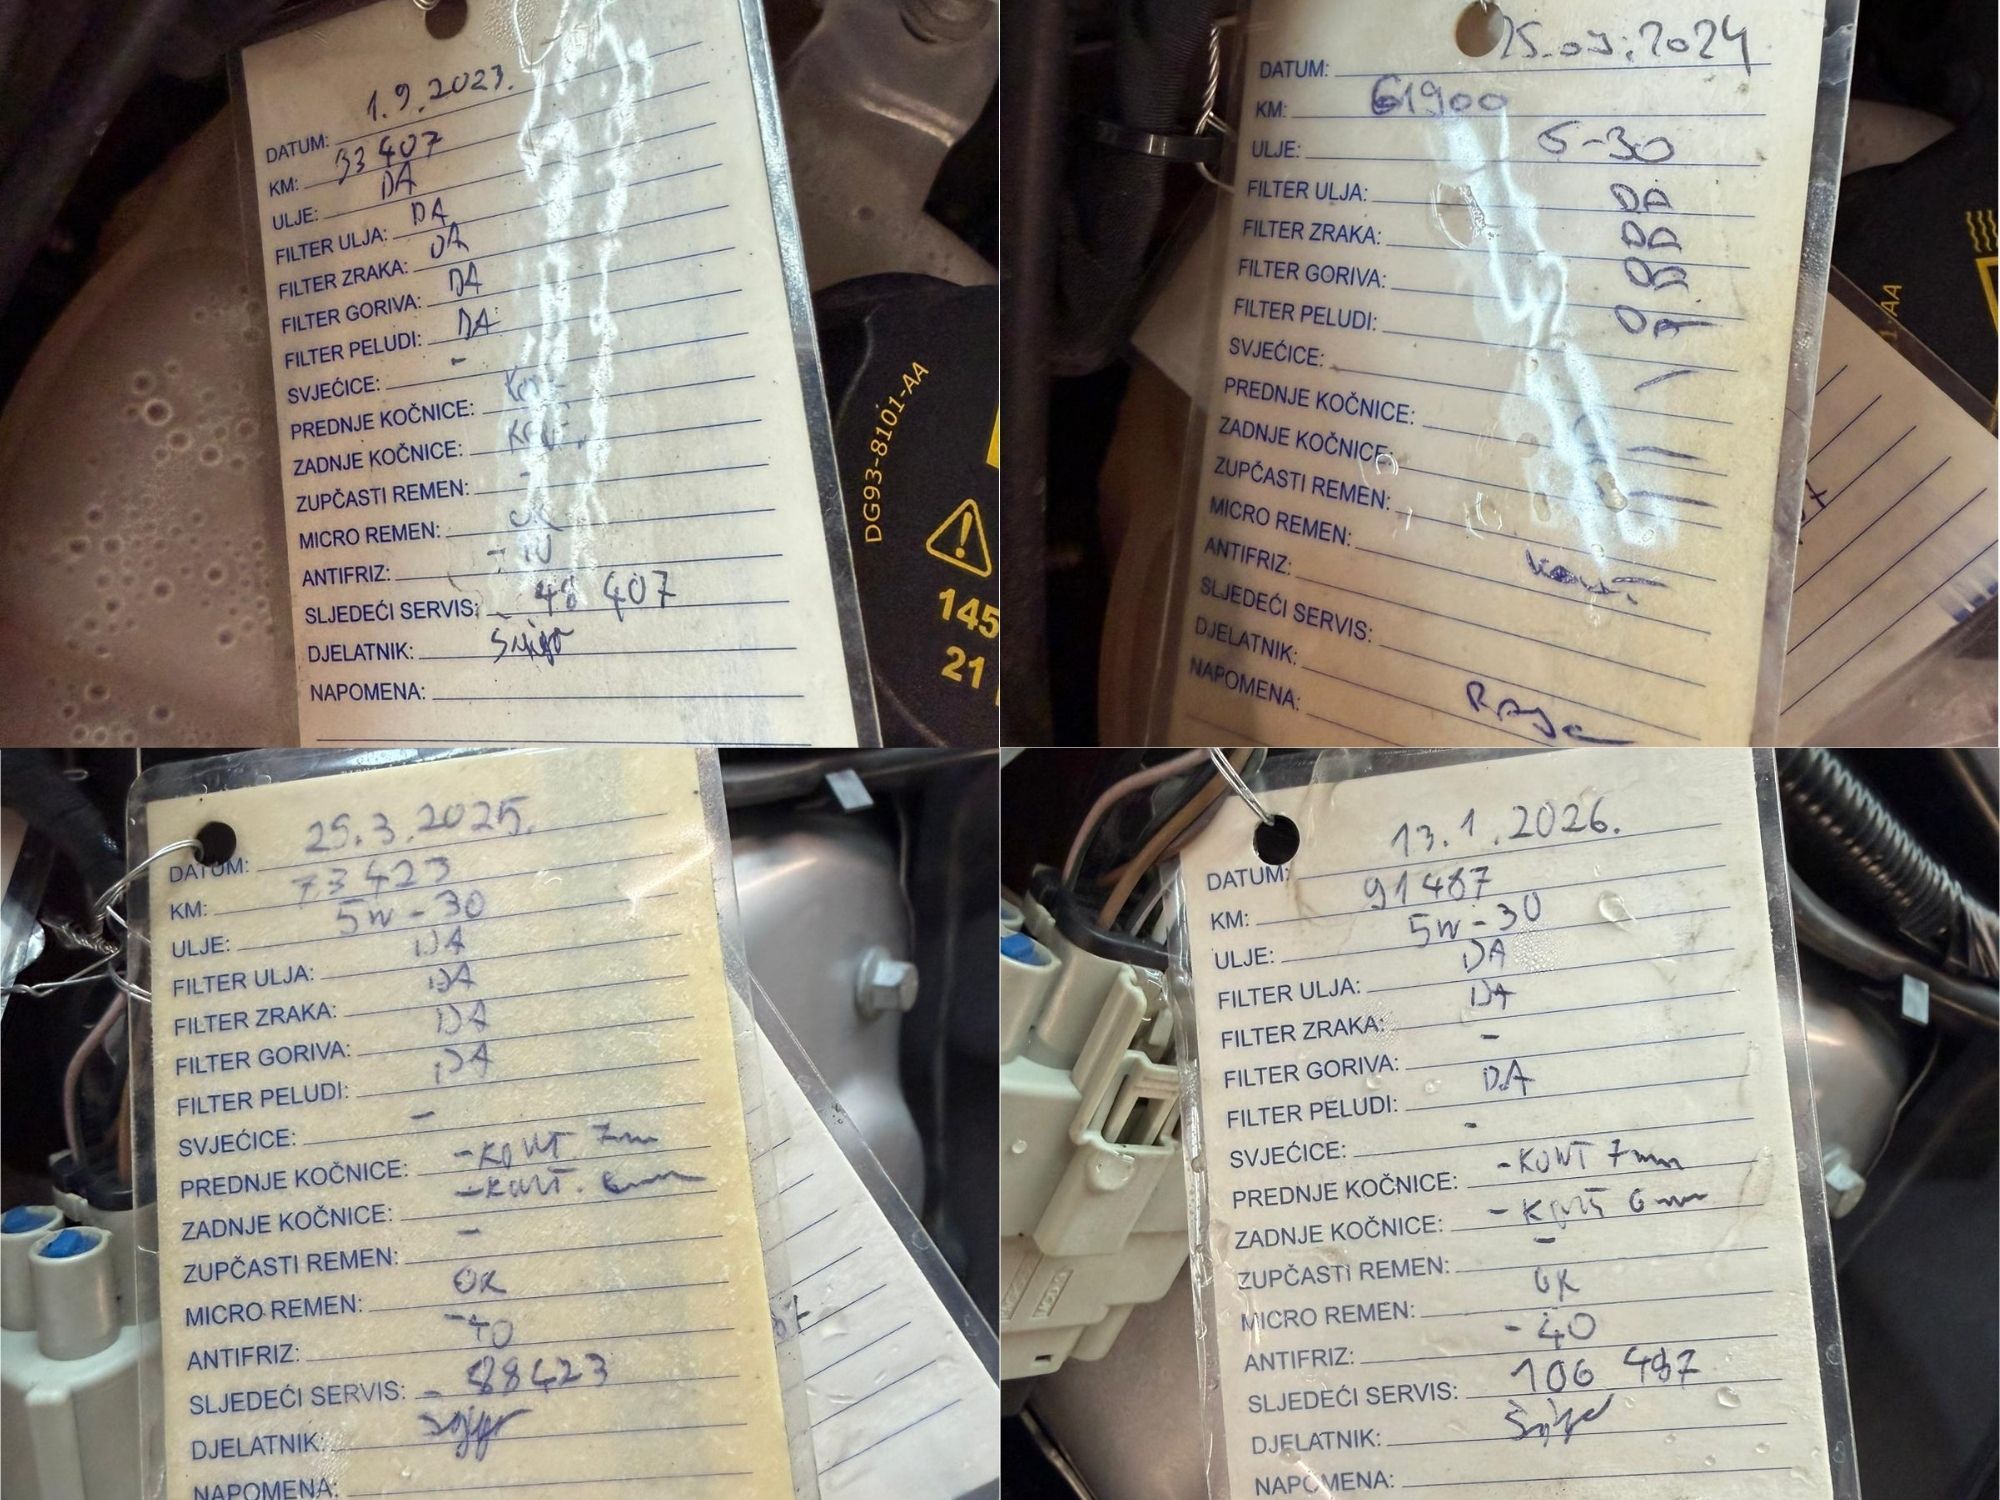 DATUM: 1.9.2023.
KM: 33 407
ULJE: DA
FILTER ULJA: DA
FILTER ZRAKA: DA
FILTER GORIVA: DA
FILTER PELUDI: DA
SVJEĆICE: -
PREDNJE KOČNICE:
ZADNJE KOČNICE:
ZUPČASTI REMEN: -
MICRO REMEN: OK
ANTIFRIZ:
SLJEDEĆI SERVIS: 48 407
DJELATNIK:
NAPOMENA:
DG93-8101-AA
145
21
DATUM: 2024
KM: 61900
ULJE: 5-30
FILTER ULJA: DA
FILTER ZRAKA: DA
FILTER GORIVA: DA
FILTER PELUDI: DA
SVJEĆICE:
PREDNJE KOČNICE:
ZADNJE KOČNICE:
ZUPČASTI REMEN:
MICRO REMEN:
ANTIFRIZ:
SLJEDEĆI SERVIS:
DJELATNIK:
NAPOMENA:
AA
DATUM: 25.3.2025.
KM: 73423
ULJE: 5W-30
FILTER ULJA: DA
FILTER ZRAKA: DA
FILTER GORIVA: DA
FILTER PELUDI: DA
SVJEĆICE: -
PREDNJE KOČNICE: - KONT 7mm
ZADNJE KOČNICE: - KONT. 6mm
ZUPČASTI REMEN: -
MICRO REMEN: OK
ANTIFRIZ: -40
SLJEDEĆI SERVIS: - 88423
DJELATNIK:
NAPOMENA:
DATUM: 13.1.2026.
KM: 91487
ULJE: 5W-30
FILTER ULJA: DA
FILTER ZRAKA: DA
FILTER GORIVA: -
FILTER PELUDI: DA
SVJEĆICE: -
PREDNJE KOČNICE: - KONT 7mm
ZADNJE KOČNICE: - KONT 6mm
ZUPČASTI REMEN: -
MICRO REMEN: OK
ANTIFRIZ: -40
SLJEDEĆI SERVIS: 106 487
DJELATNIK:
NAPOMENA: